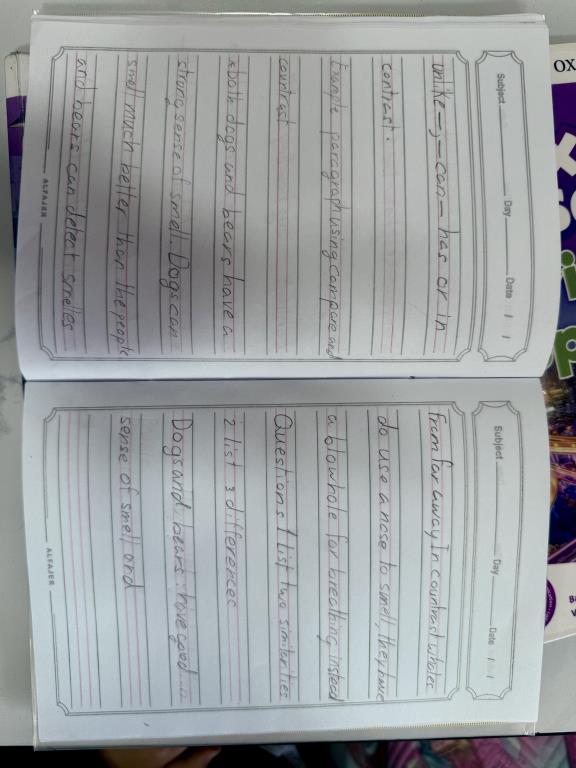 Subject Day Date / /
unlike -, - can - has or in
contrast.
Example paragraph using compare and
countrast
*both dogs and bears have a
strong sense of smell. Dogs can
smell much better than the people
and bears can detect smelles
ALFAJER
Subject Day Date / /
From far away In countrast whales
do use a nose to smell, they have
a blowhole for breathing instead
Questions 1 list two similarities
2 list 3 differences
Dogs and bears have good
sense of smell and
ALFAJER
OX